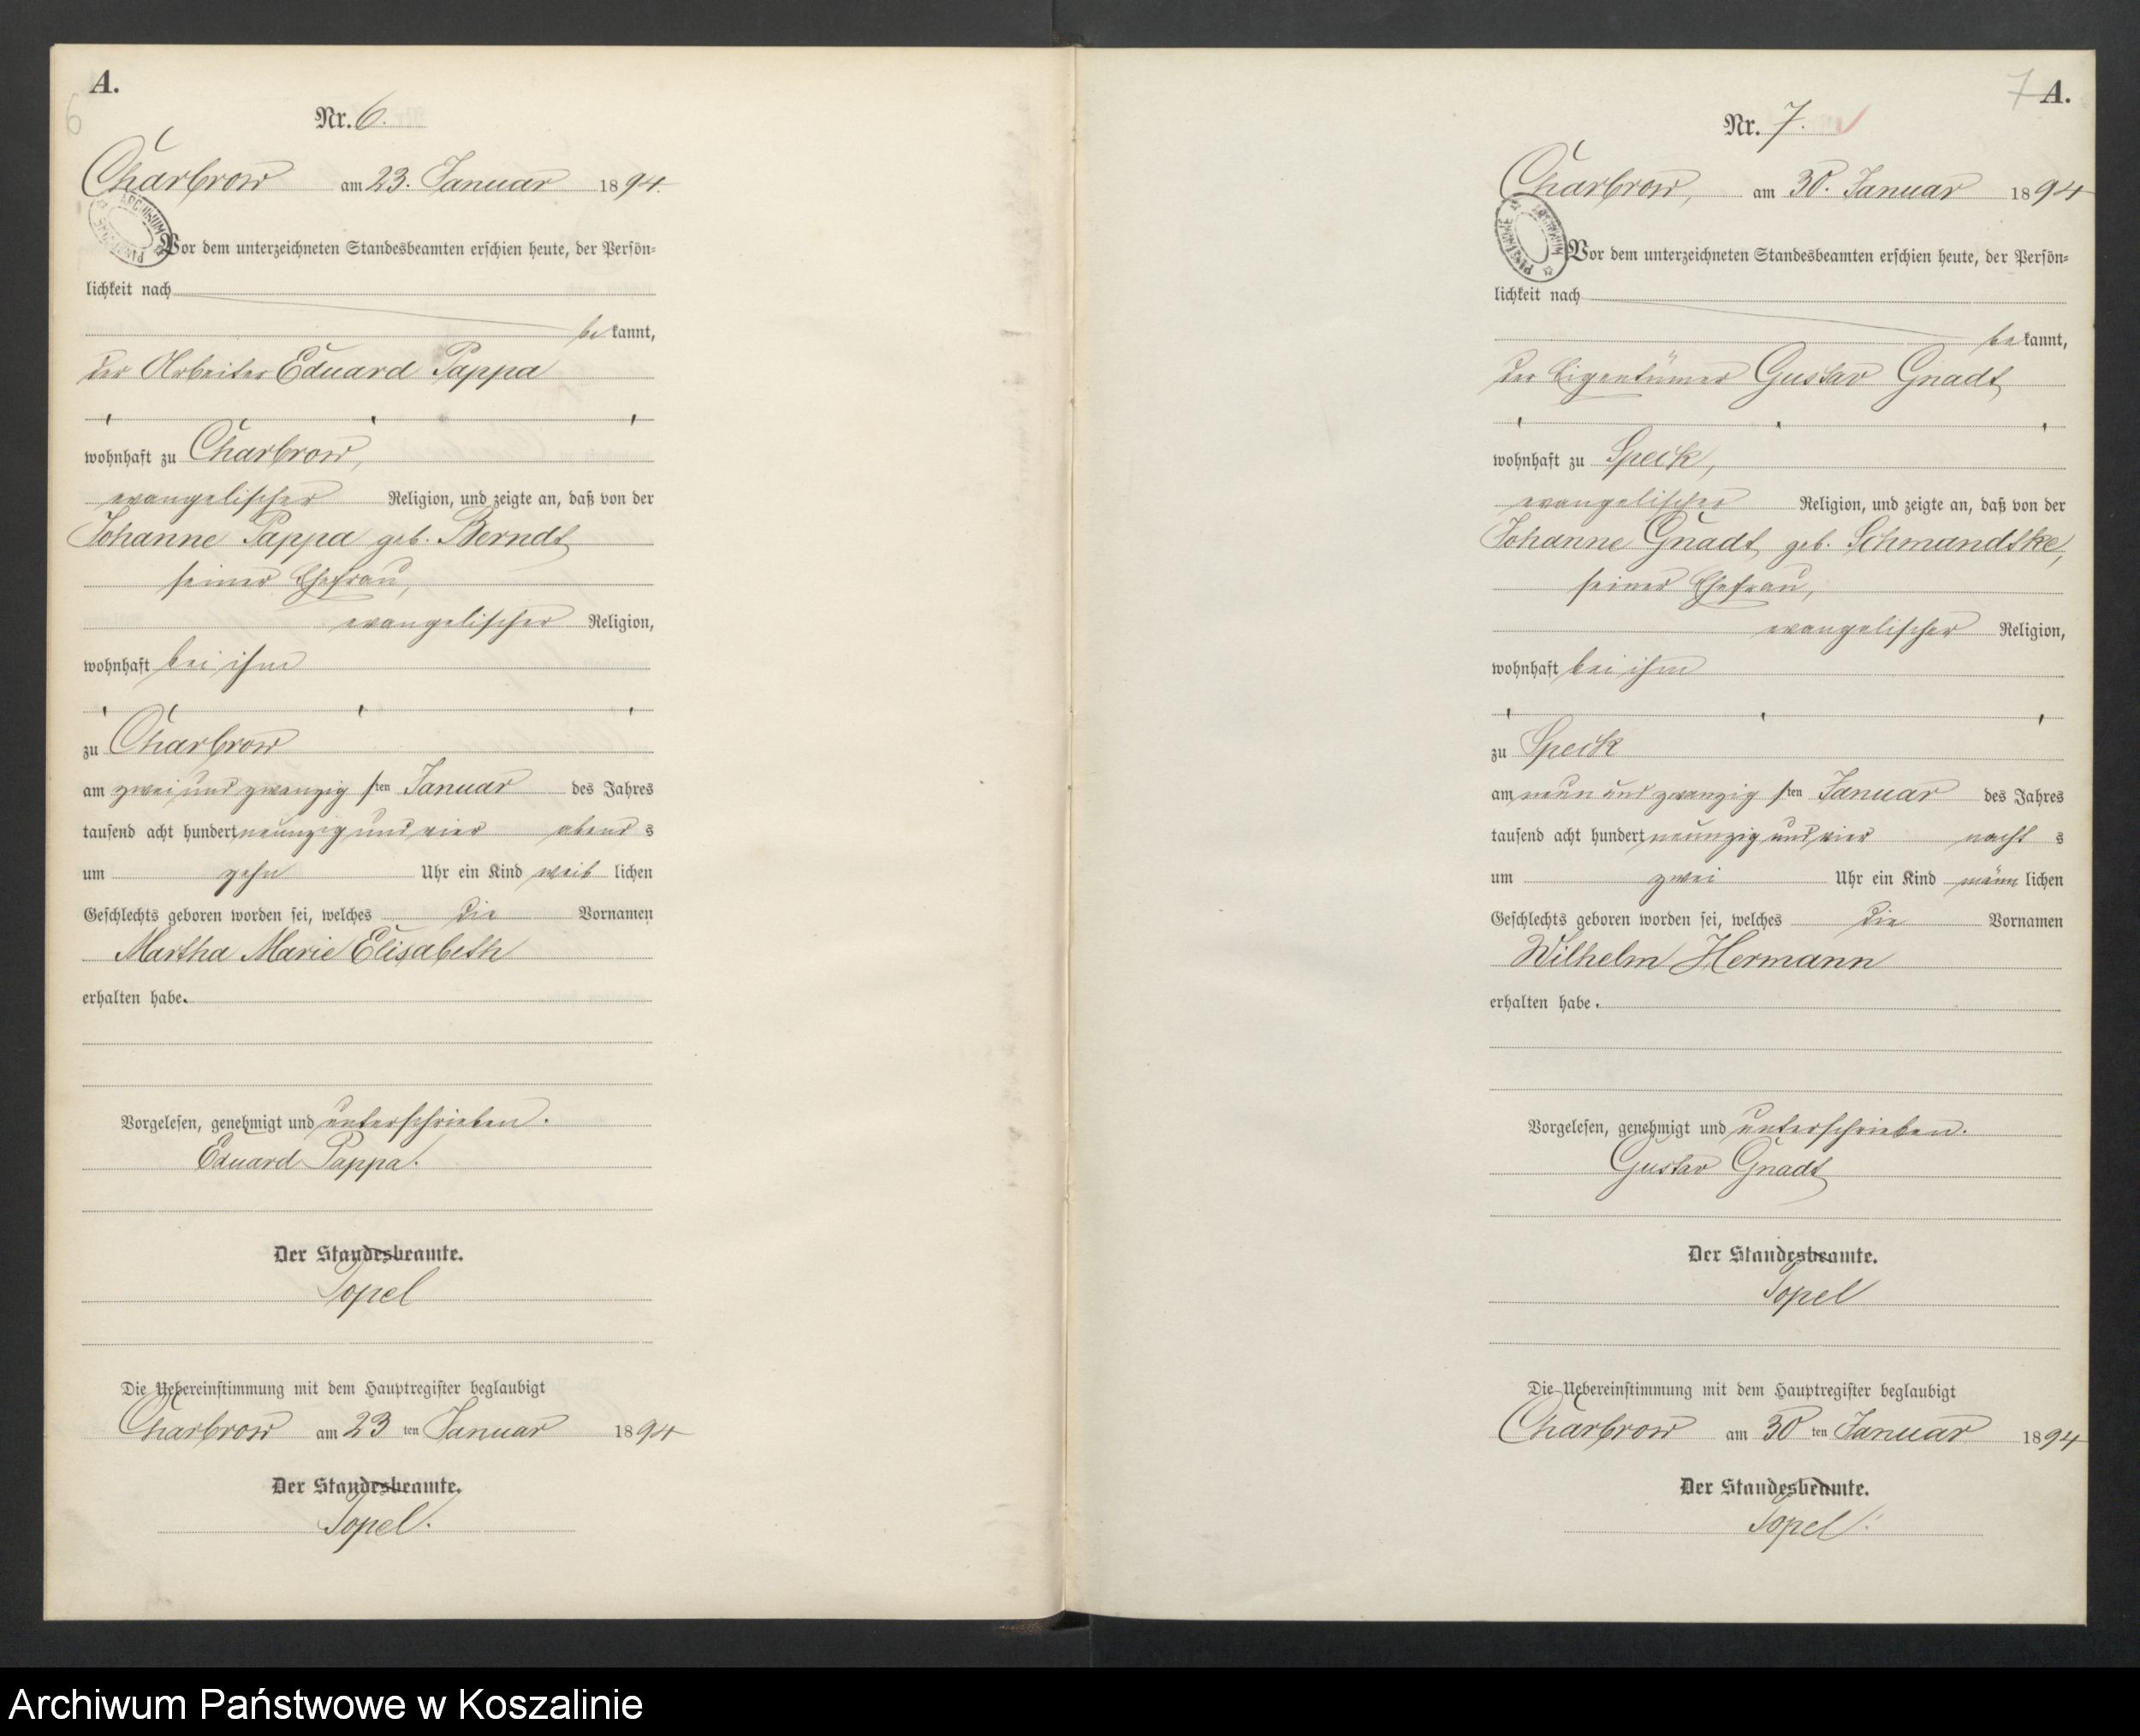 A.
6
Nr. 6.
Charbrow am 23. Januar 1894.
Vor dem unterzeichneten Standesbeamten erschien heute, der Persön-
lichkeit nach
bekannt,
der Arbeiter Eduard Pappa
wohnhaft zu Charbrow,
evangelischer Religion, und zeigte an, daß von der
Johanne Pappa geb. Berndt
seiner Ehefrau,
evangelischer Religion,
wohnhaft bei ihm
zu Charbrow
am zwei und zwanzigsten Januar des Jahres
tausend acht hundert neunzig und vier abends
um zehn Uhr ein Kind weiblichen
Geschlechts geboren worden sei, welches die Vornamen
Martha Marie Elisabeth
erhalten habe.
Vorgelesen, genehmigt und unterschrieben.
Eduard Pappa.
Der Standesbeamte.
Topel
Die Uebereinstimmung mit dem Hauptregister beglaubigt
Charbrow am 23ten Januar 1894
Der Standesbeamte.
Topel.
7
A.
Nr. 7.
Charbrow, am 30. Januar 1894
Vor dem unterzeichneten Standesbeamten erschien heute, der Persön-
lichkeit nach
bekannt,
der Eigentümer Gustav Gnadt
wohnhaft zu Speck,
evangelischer Religion, und zeigte an, daß von der
Johanne Gnadt geb. Schmandtke,
seiner Ehefrau,
evangelischer Religion,
wohnhaft bei ihm
zu Speck
am neun und zwanzigsten Januar des Jahres
tausend acht hundert neunzig und vier nachts
um zwei Uhr ein Kind männlichen
Geschlechts geboren worden sei, welches die Vornamen
Wilhelm Hermann
erhalten habe.
Vorgelesen, genehmigt und unterschrieben.
Gustav Gnadt
Der Standesbeamte.
Topel
Die Uebereinstimmung mit dem Hauptregister beglaubigt
Charbrow am 30ten Januar 1894
Der Standesbeamte.
Topel.
Archiwum Państwowe w Koszalinie